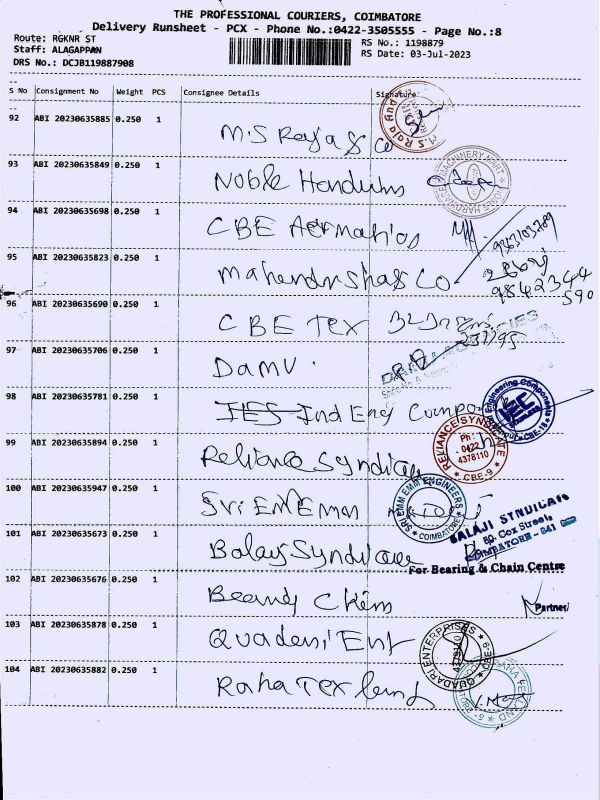 THE PROFESSIONAL COURIERS, COIMBATORE
Delivery Runsheet - PCX - Phone No.:0422-3505555 - Page No.:8
Route: RGKNR ST
RS No.: 1198879
Staff: ALAGAPPAN
RS Date: 03-Jul-2023
DRS No.: DCJB119887908
S No Consignment No Weight PCS Consignee Details Signature
92 ABI 20230635885 0.250 1 M.S Raja & Co
M.S Raja And
93 ABI 20230635849 0.250 1 Noble
MACHINERY MART
94 ABI 20230635698 0.250 1 CBE
9863103789
95 ABI 20230635823 0.250 1 & Co
9842344
590
96 ABI 20230635690 0.250 1 CBE Tex
237795
97 ABI 20230635706 0.250 1 Damu.
98 ABI 20230635781 0.250 1 Ind Eng Compo
Engineering Components
IEC
CBE-18
99 ABI 20230635894 0.250 1 Reliance Syndicate
RELIANCE SYNDICATE
Ph:
0422
4378110
CBE-9
100 ABI 20230635947 0.250 1 Sri
SRI EMM EMM ENGINEERS
COIMBATORE
101 ABI 20230635673 0.250 1 Balaji Syndicate
BALAJI SYNDICATE
Cox Street
COIMBATORE - 641
For Bearing & Chain Centre
102 ABI 20230635676 0.250 1
Partner
103 ABI 20230635878 0.250 1 Quaderi Ent
QUADARI ENTERPRISES
4379110
104 ABI 20230635882 0.250 1 Raha Tex